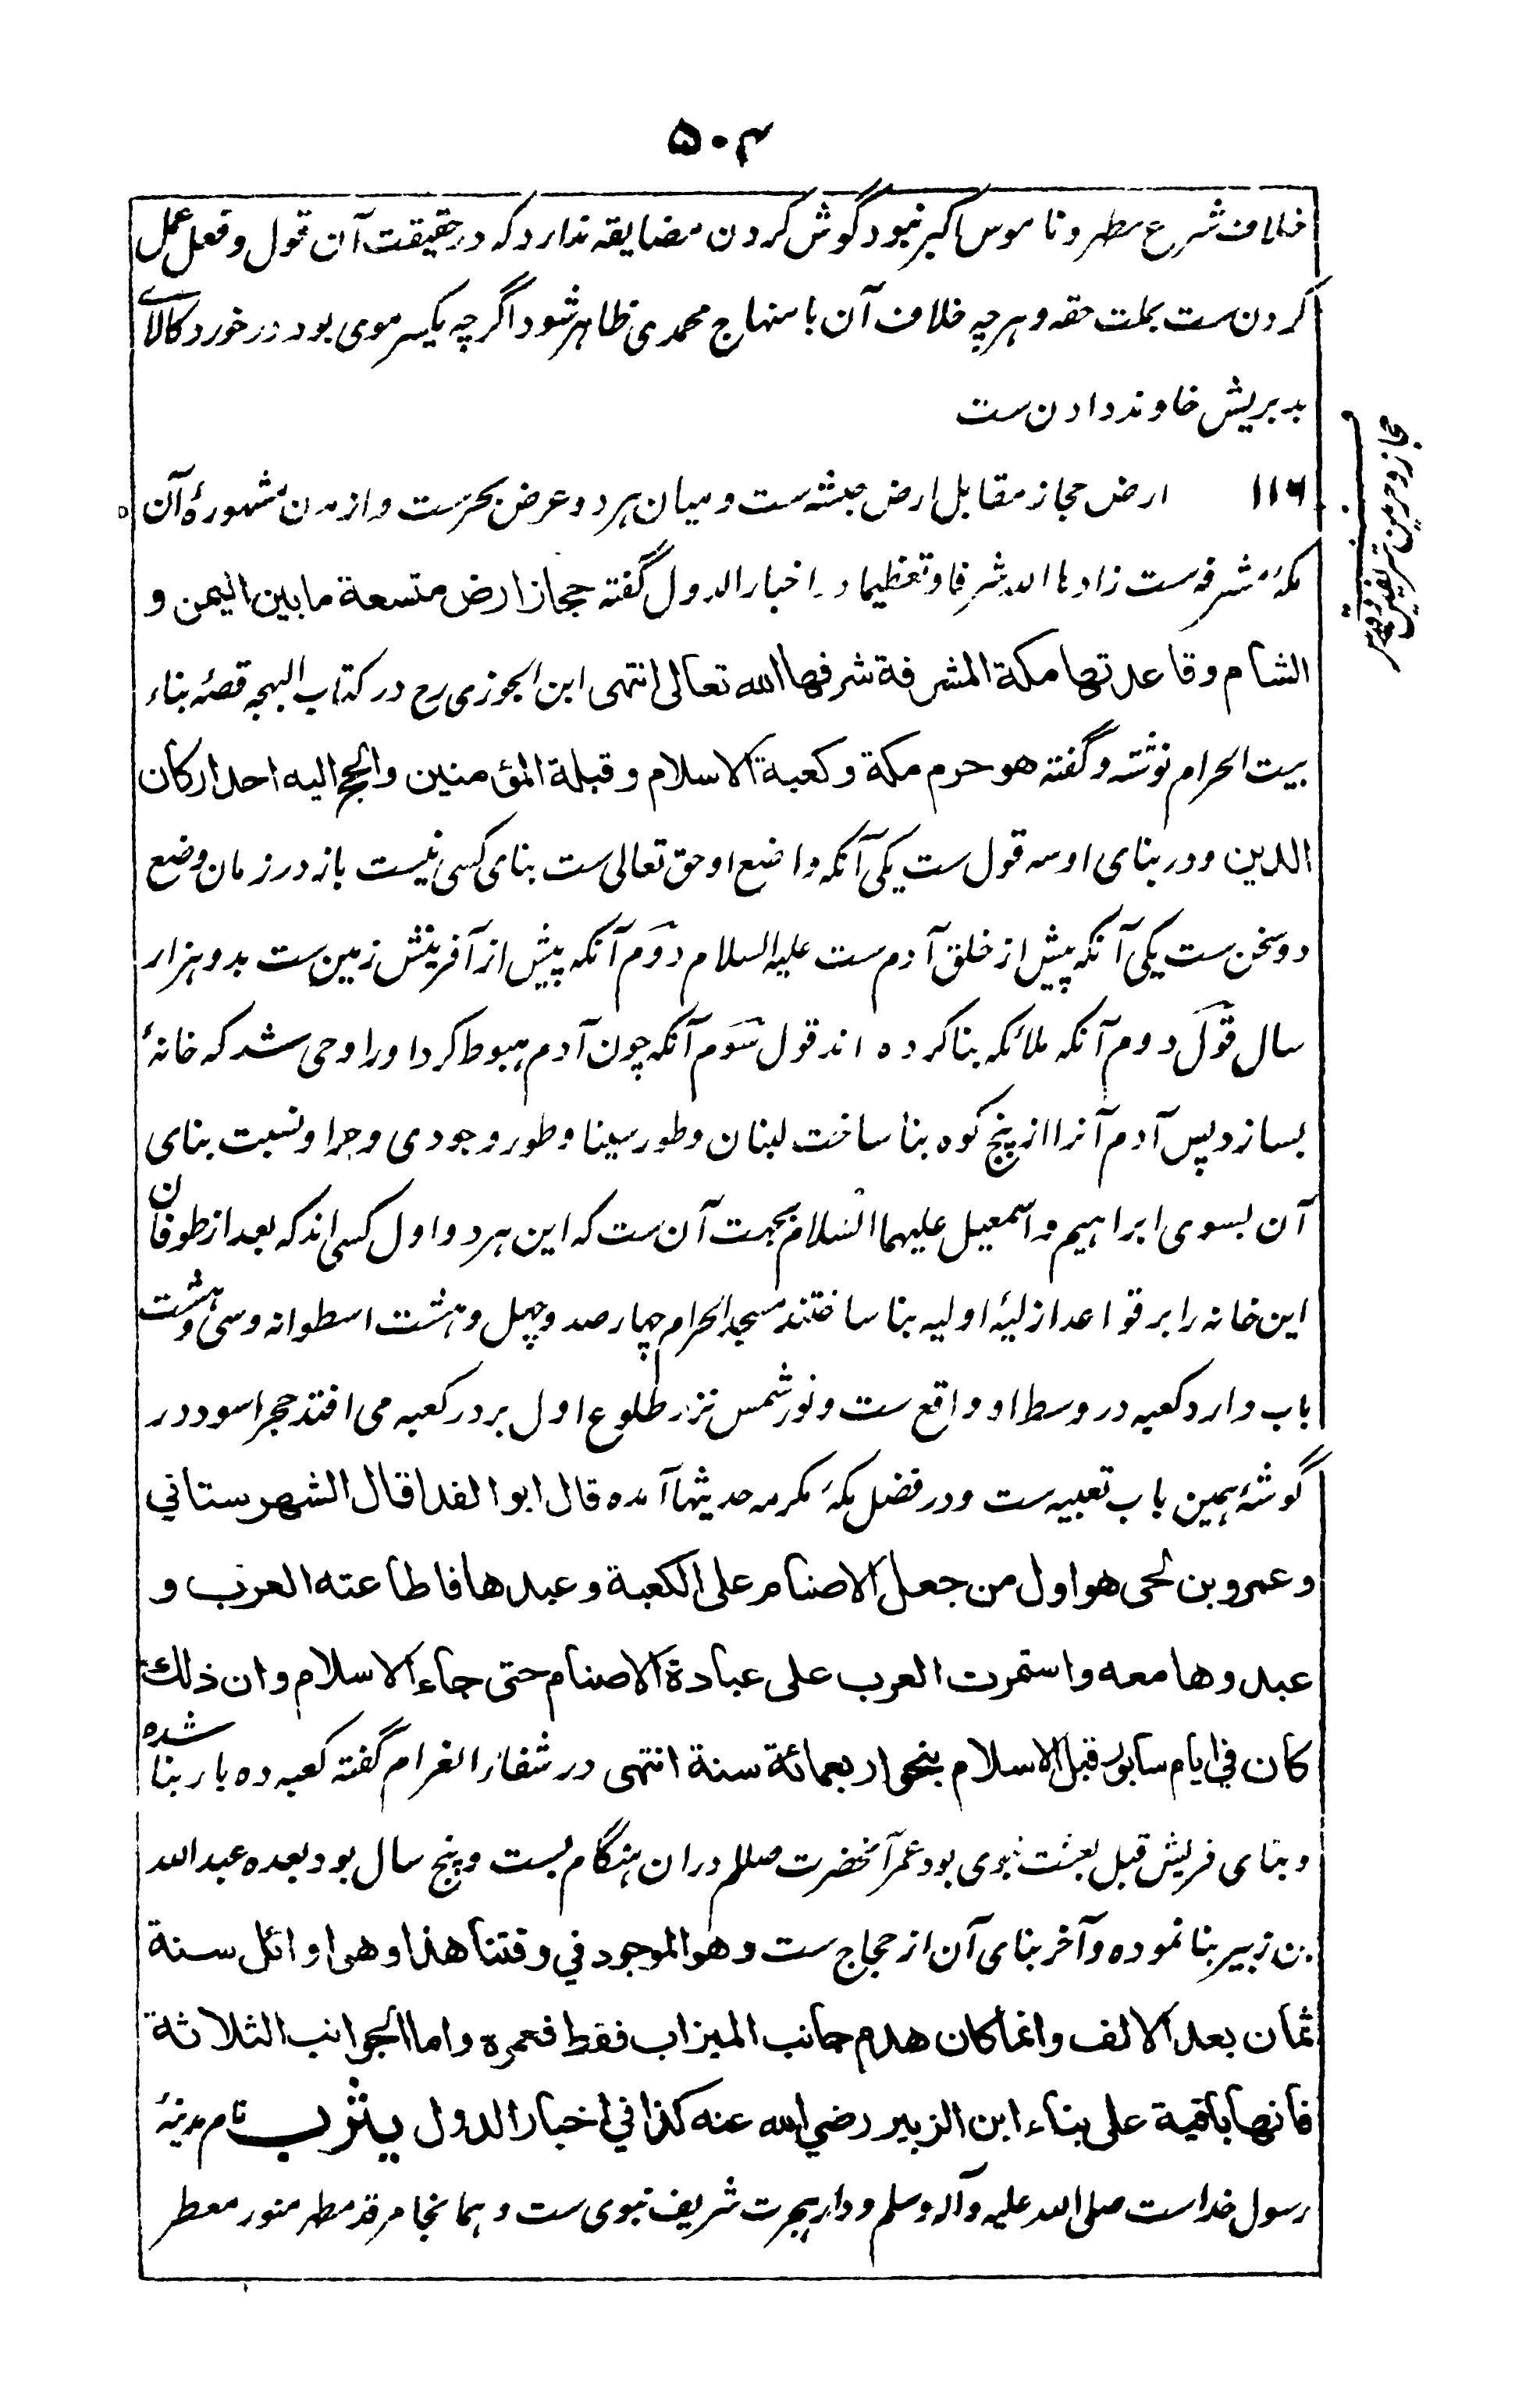 ۵۰۴
خلاف شرع مطهر و ناموس اکبر نبود گوش کردن مضایقه ندارد که در حقیقت آن قول و فعل عمل
کردن ست بملت حقه و هرچه خلاف آن با منهاج محمدی ظاهر شود اگرچه یکسر موی بود در خورد کالای
بد بریش خاوند دادن ست
حجاز و حرمین شریفین
۱۱۶ ارض حجاز مقابل ارض حبشه ست و میان هر دو عرض بحرست و از مدن مشهورهٔ آن
مکهٔ مشرفه ست زادها الله شرفا و تعظیما در اخبار الدول گفته حجاز ارض متسعة ما بین الیمن و
الشام وقاعدتها مكة المشرفة شرفها الله تعالى انتهی ابن الجوزی رح در کتاب البهجه قصهٔ بناء
بیت الحرام نوشته و گفته هو حرم مكة وكعبة الاسلام وقبلة المؤمنين والحج اليه احد اركان
الدين و در بنای او سه قول ست یکی آنکه واضع او حق تعالی ست بنای کسی نیست باز در زمان وضع
دو سخن ست یکی آنکه پیش از خلق آدم ست علیه السلام دوم آنکه پیش از آفرینش زمین ست بدو هزار
سال قول دوم آنکه ملائکه بنا کرده اند قول سوم آنکه چون آدم هبوط کرد او را وحی شد که خانهٔ
بسازد پس آدم آنرا از پنج کوه بنا ساخت لبنان و طور سینا و طور و جودی و حرا و نسبت بنای
آن بسوی ابراهیم و اسمعیل علیهما السلام بجهت آن ست که این هر دو اول کسی اند که بعد از طوفان
این خانه را بر قواعد ازلیهٔ اولیه بنا ساختند مسجد الحرام چهار صد و چهل و هشت اسطوانه و سی و هشت
باب دارد کعبه در وسط او واقع ست و نور شمس نزد طلوع اول بر در کعبه می افتد حجر اسود در
گوشهٔ همین باب تعبیه ست و در فضل مکهٔ مکرمه حدیثها آمده قال ابو الفدا قال الشهرستاني
وعمرو بن لحى هو اول من جعل الاصنام على الكعبة وعبدها فاطاعته العرب و
عبدوها معه واستمرت العرب على عبادة الاصنام حتى جاء الاسلام وان ذلك
كان في ايام سابور قبل الاسلام بنحو اربعمائة سنة انتهی در شفاء الغرام گفته کعبه ده بار بنا شده
و بنای قریش قبل بعثت نبوی بود عمر آنحضرت صللم دران هنگام بست و پنج سال بود بعده عبد الله
بن زبیر بنا نموده و آخر بنای آن از حجاج ست وهو الموجود في وقتنا هذا وهو اوائل سنة
ثمان بعد الالف وانما كان هدم جانب الميزاب فقط فعمره واما الجوانب الثلاثة
فانها باقية على بناء ابن الزبير رضي الله عنه كذا في اخبار الدول يثرب نام مدینهٔ
رسول خداست صلی الله علیه و آله وسلم و دار هجرت شریف نبوی ست و همانجا مرقد مطهر منور معطر